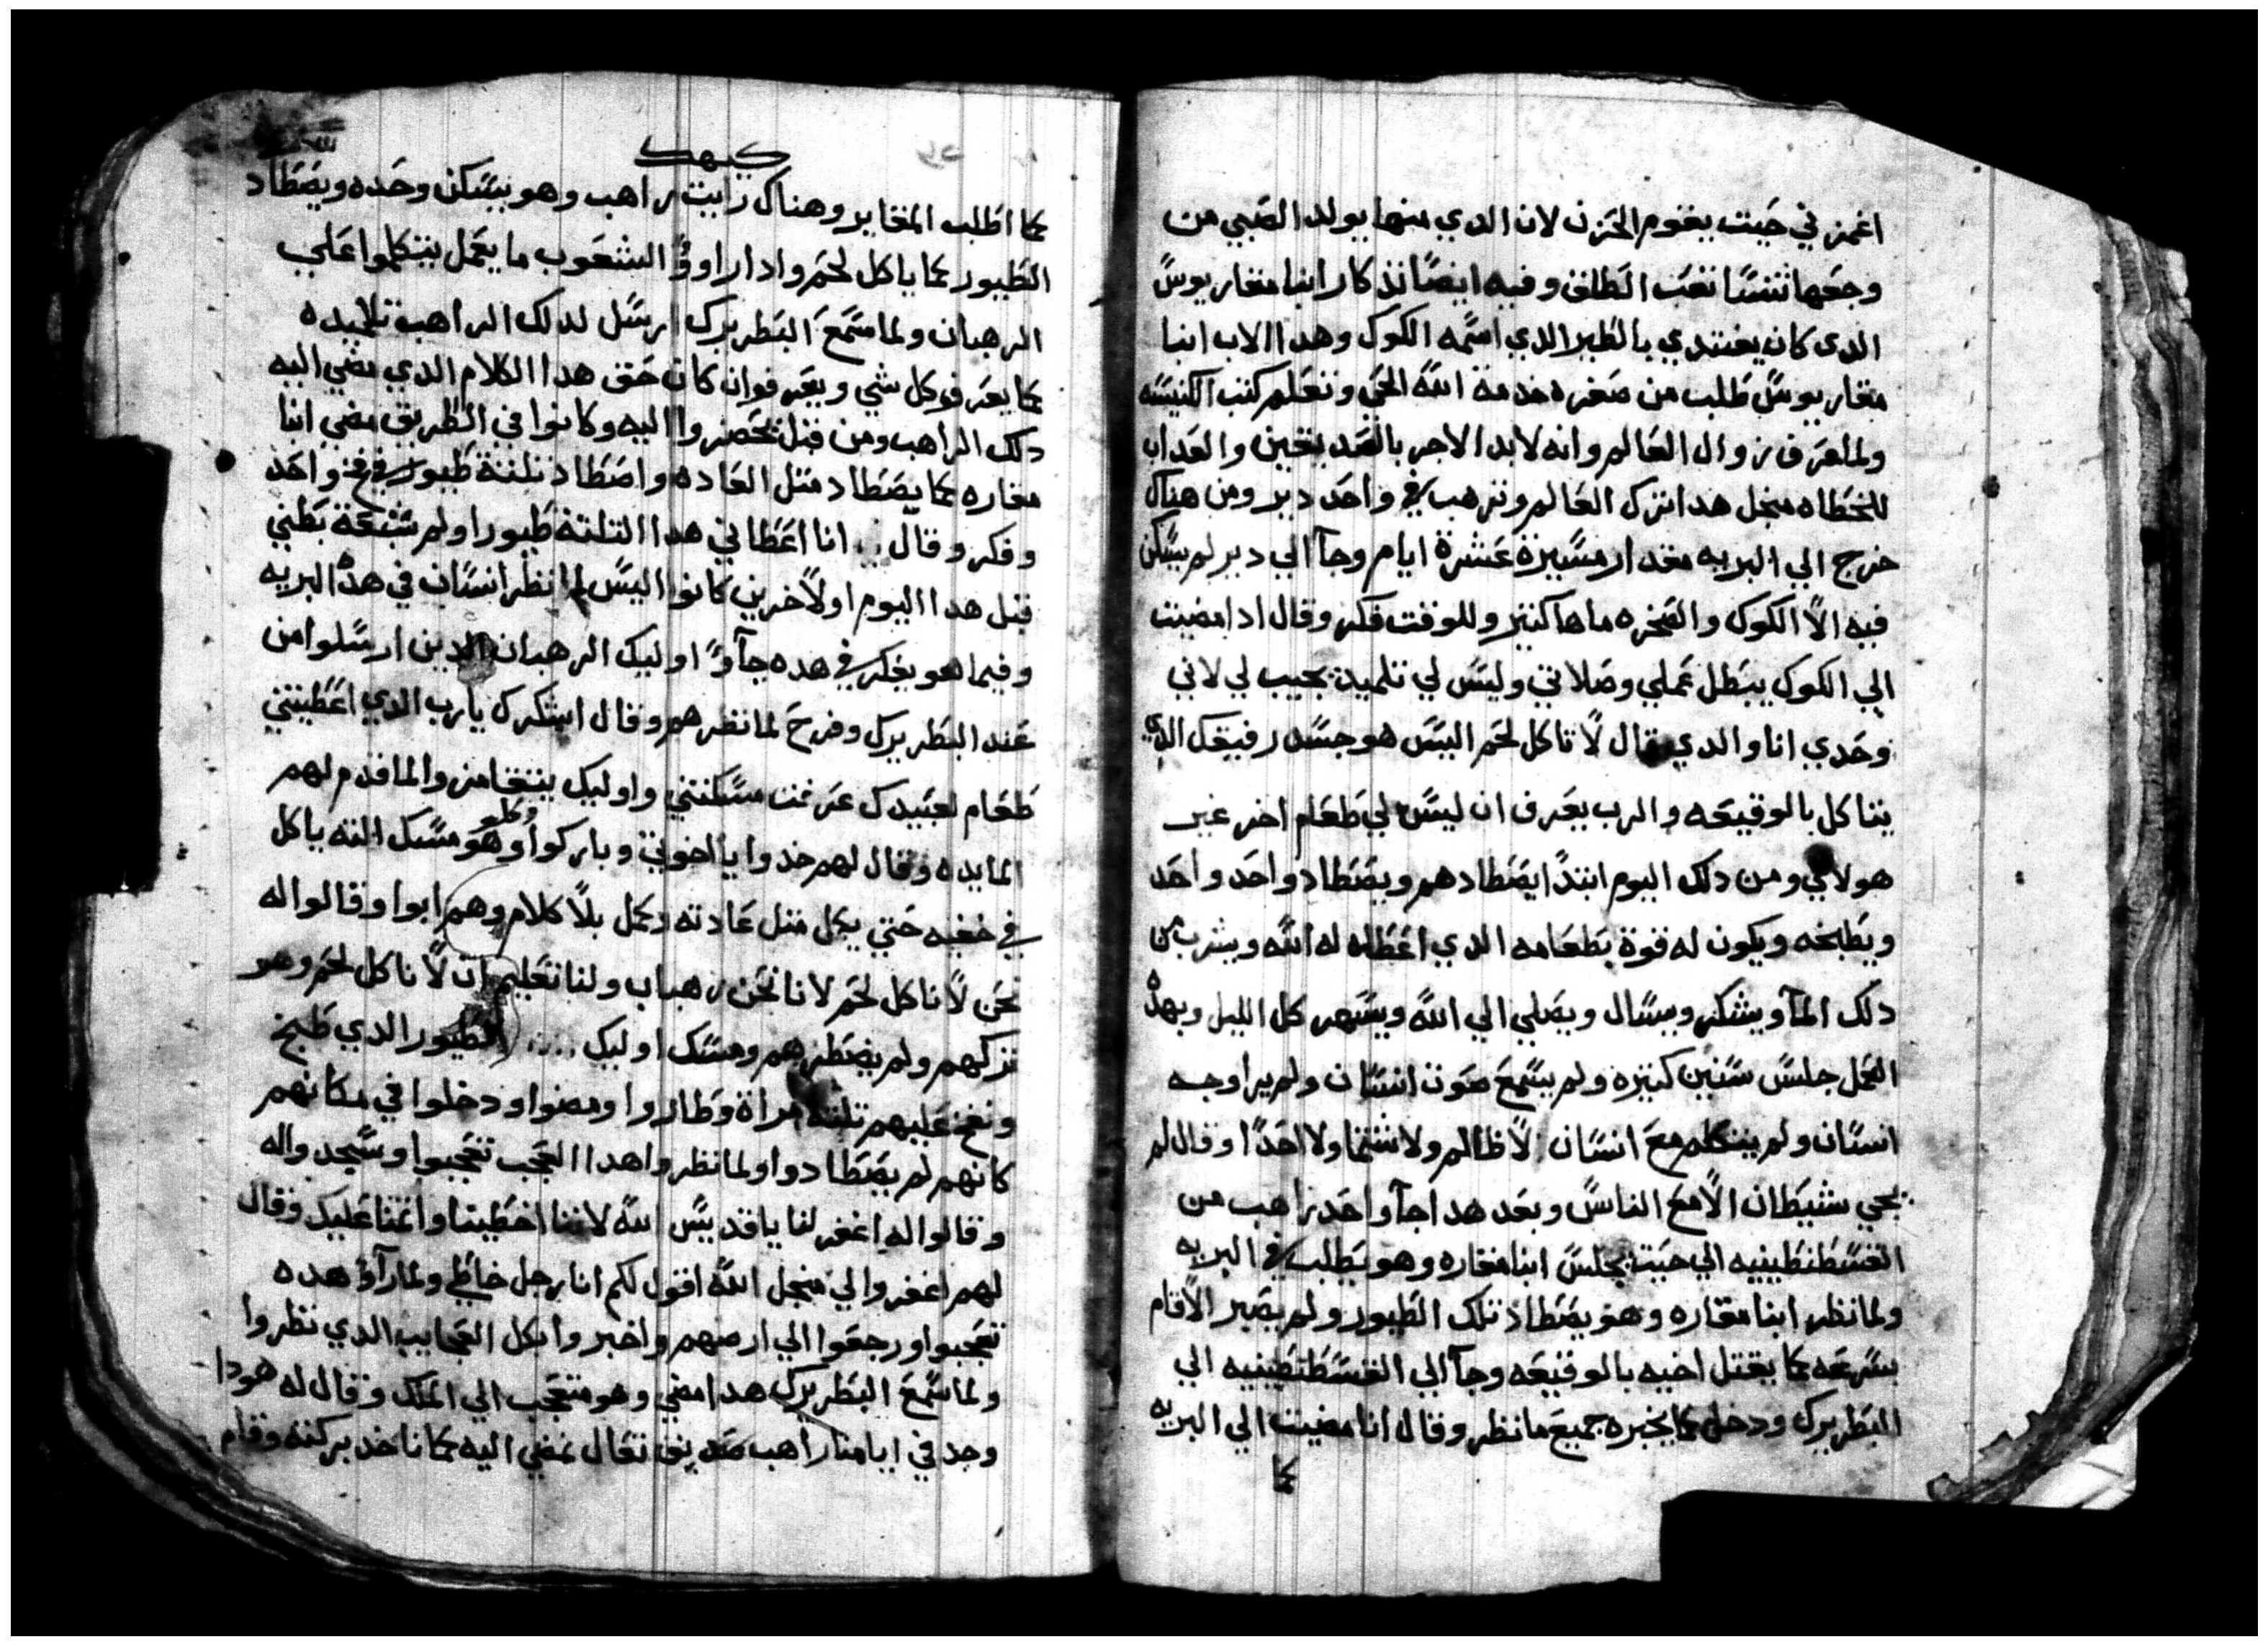 اغمز في حيت يقوم الحزن لان الدي منها يولد الصبي من
وجعها تنسا تعب الطلق وفيه ايضا تذكار ابنا مقاريوس
الدى كان يغتدي بالطير الدي اسمه الكوك وهدا الاب ابنا
مقاريوس طلب من صغره خدمة الله الحي وتعلم كتب الكنيسه
ولما عرف زوال العالم وانه لابد الاجر بالصديقين والعداب
للخطاه منجل هدا ترك العالم وترهب في واحد دير ومن هناك
خرج الي البريه مقدار مسيرة عشرة ايام وجآ الي دير لم يسكن
فيه الا الكوك والصخره ماها كتير وللوقت فكر وقال ادا مضيت
الي الكوك يبطل عملي وصلاتي وليس لي تلميد يجيب لي لاني
وحدي انا والدي قال لا تاكل لحم اليس هو جسد رفيقك الدي
يتاكل بالوقيعه والرب يعرف ان ليس لي طعام اخر غير
هولاي ومن دلك اليوم ابتدا يصطادهم ويصطاد واحد واحد
ويطبخه ويكون له قوة بطعامه الدي اعطاه له الله ويشرب من
دلك المآ ويشكر ويسال ويصلي الي الله ويسهر كل الليل وبهده
العمل جلس سنين كتيره ولم يسمع صوت انسان ولم يرا وجه
انسان ولم يتكلم مع انسان لا ظالم ولا شتما ولا احدا وقال لم
يجي شيطان الا مع الناس وبعد هدا جآ واحد راهب من
القسطنطينيه الي حيت يجلس ابنا مقاره وهو يطلب في البريه
ولما نظر ابنا مقاره وهو يصطاد تلك الطيور ولم يصبر الا قام
بسرعه كما يقتل اخيه بالوقيعه وجآ الي القسطنطينيه الي
البطريرك ودخل كما يخبره جميع ما نظر وقال انا مضيت الي البريه
كما
كيهك
كما اطلب المقابر وهناك رايت راهب وهو بيسكن وحده ويصطاد
الطيور كما ياكل لحم وادا راوه الشعوب ما يعمل يتكلموا علي
الرهبان ولما سمع البطريرك ارسل لدلك الراهب تلاميده
كما يعرف كل شي ويعرفوا ان كان حق هدا الكلام الدي مضي اليه
دلك الراهب ومن قبل يحضروا اليه وكانوا في الطريق مضي ابنا
مقاره كما يصطاد متل العاده واصطاد تلتة طيور في فخ واحد
وفكر وقال انا اعطاني هدا التلتة طيور اولم شبعة بطني
قبل هدا اليوم اولآخرين كانوا اليس لم انظر انسان في هده البريه
وفيما هو يفكر في هده جآوا اوليك الرهبان الدين ارسلوا من
عند البطريرك وفرح لما نظرهم وقال اشكرك يارب الدي اعطيتني
طعام لعبيدك عرفت مسكنتي واوليك يتغامزوا لما قدم لهم
المايده وقال لهم خدوا يا اخوتي وباركوا وكلو وهو مسك انته ياكل
في خفيه حتي يكل متل عادته وعمل بلا كلام وهم ابوا وقالوا له
نحن لا ناكل لحم لانا نحن رهبان ولنا تعليم ان لا ناكل لحم وهو
تركهم ولم يضطرهم ومسك اوليك الطيور الدي طبخ
ونفخ عليهم تلتة مراة وطاروا ومضوا ودخلوا في مكانهم
كانهم لم يصطادوا ولما نظروا هدا العجب تعجبوا وسجدوا له
وقالوا له اغفر لنا يا قديس الله لاننا اخطينا واتمنا عليك وقال
لهم اغفروا لي منجل الله اقول لكم انا رجل خاطي ولما رآو هده
تعجبوا ورجعوا الي ارضهم واخبروا بكل العجايب الدي نظروا
ولما سمع البطريرك هدا مضي وهو متعجب الي الملك وقال له هودا
وجد في ايامنا راهب صديق تعال نمضي اليه كما ناخد بركته وقام